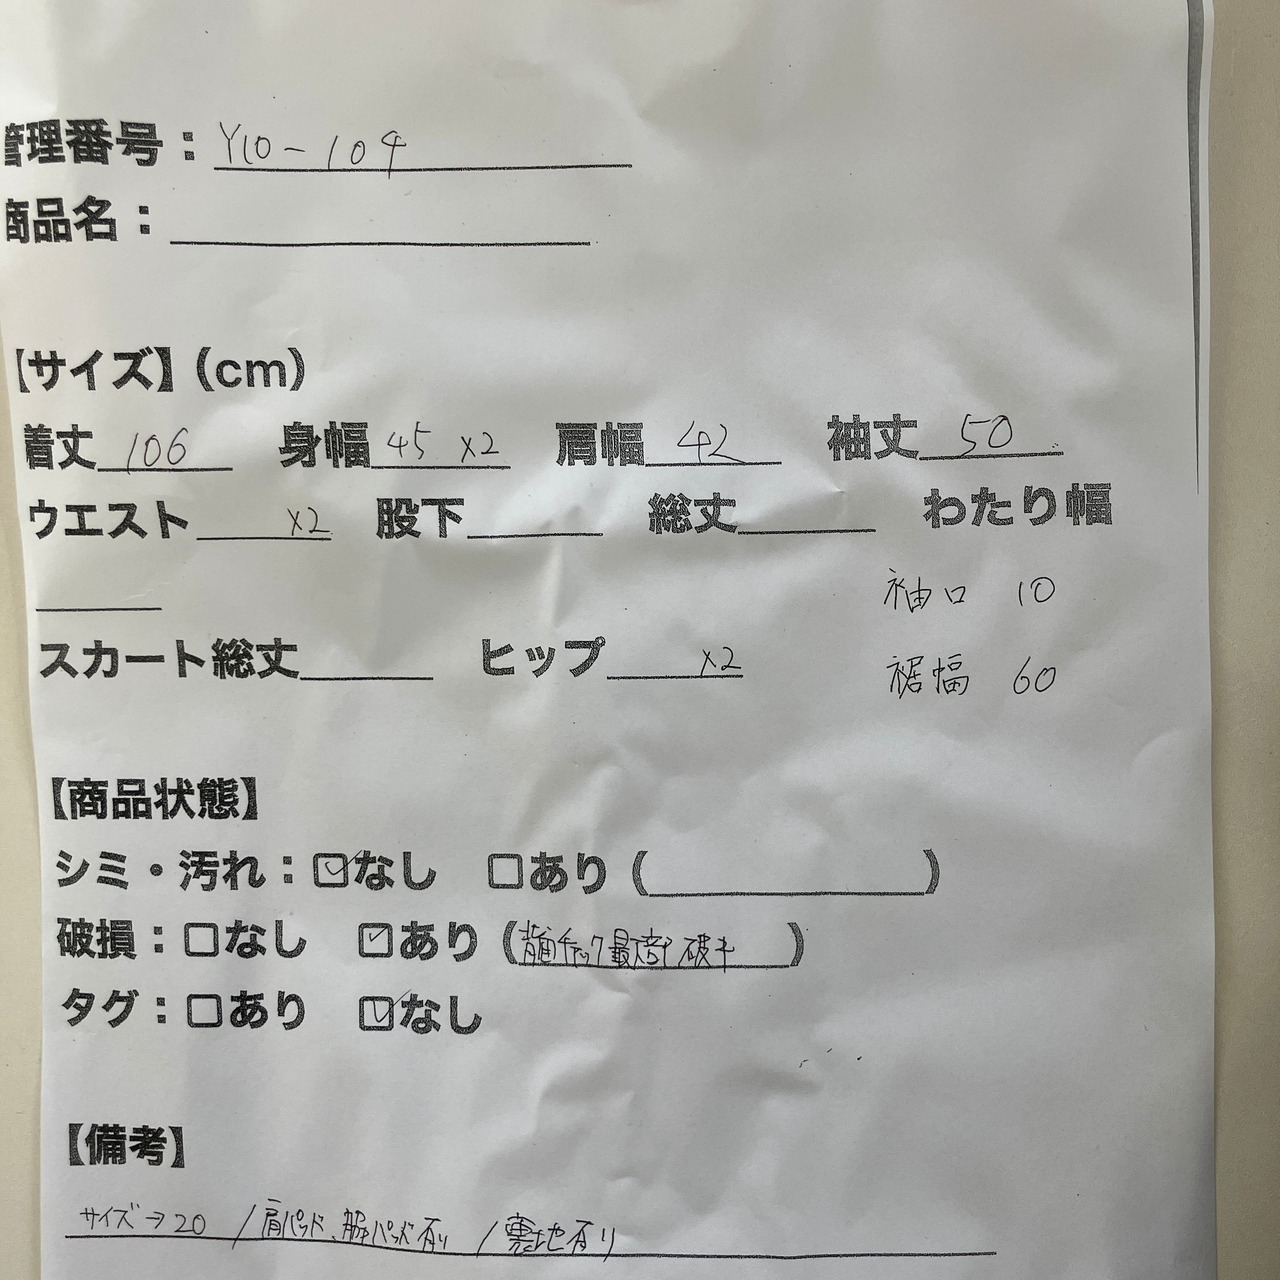 管理番号：Y10-104
商品名：
【サイズ】（cm）
着丈 106 身幅 45 x2 肩幅 42 袖丈 50
ウエスト x2 股下 総丈 わたり幅
袖口 10
スカート総丈 ヒップ x2
裾幅 60
【商品状態】
シミ・汚れ：☑なし □あり（ ）
破損：□なし ☑あり（背面チャック最下部 破れ）
タグ：□あり ☑なし
【備考】
サイズ→20 /肩パッド、胸パッド有り /裏地有り